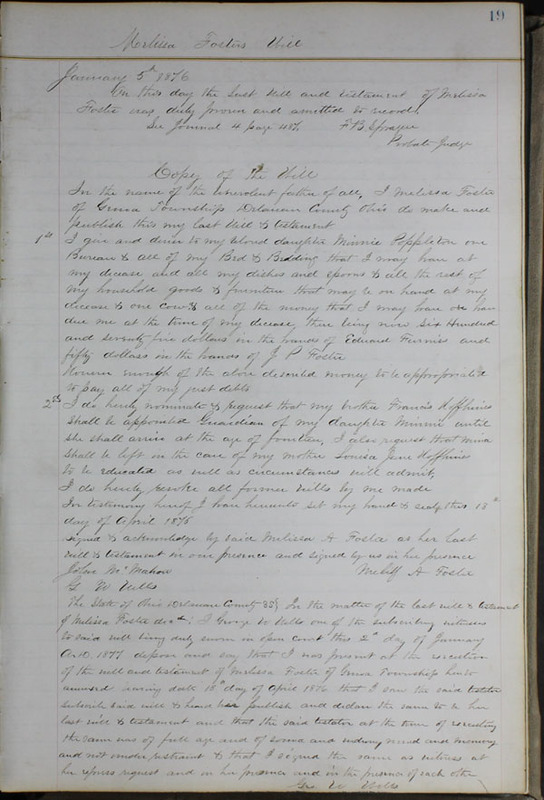 19
Melissa Fosters Will
January 5th 1876
On this day the Last Will and testament of Melissa
Foster was duly proven and admitted to record.
See Journal 4 page 486 F B Sprague
Probate Judge
Copy of the Will
In the name of the benevolent father of all, I Melissa Foster
of Genoa Township Delaware County Ohio do make and
publish this my last Will & testament
1st I give and devise to my beloved daughter Minnie Poppleton one
Bureau & all of my Bed & Bedding that I may have at
my decease and all my dishes and spoons & all the rest of
my household goods & furniture that may be on hand at my
decease & one cow & all of the money that I may have or have
due me at the time of my decease, there being now six Hundred
and seventy five dollars in the hands of Edward Furniss and
fifty dollars in the hands of J P Foster
However enough of the above described money to be appropriated
to pay all of my just debts
2nd I do hereby nominate & request that my brother Francis Hoffhines
shall be appointed Guardian of my daughter Minnie until
she shall arrive at the age of fourteen, I also request that Minnie
shall be left in the care of my mother Louisa Jane Hoffhines
to be educated as well as circumstances will admit,
I do hereby revoke all former wills by me made
In testimony hereof I have hereunto set my hand & seal this 13th
day of April 1876
signed & acknowledge by said Melissa A Foster as her last
will & testament in our presence and signed by us in her presence
John McMahon A Foster
G W Wells
The State of Ohio Delaware County SS} In the matter of the last will & testament
of Melissa Foster decd: I George W Wells one of the subscribing witnesses
to said will being duly sworn in open Court this 2nd day of January
A.D. 1877 depose and say that I was present at the execution
of the will and testament of Melissa Foster of Genoa Township hereto
annexed bearing date 13th day of April 1876 that I saw the said testator
subscribe said will & heard her publish and declare the same to be her
last will & testament and that the said testator at the time of executing
the same was of full age and of sound and disposing mind and memory
and not under restraint & that I signed the same as witness at
her express request and in her presence and in the presence of each other
Geo W Wells